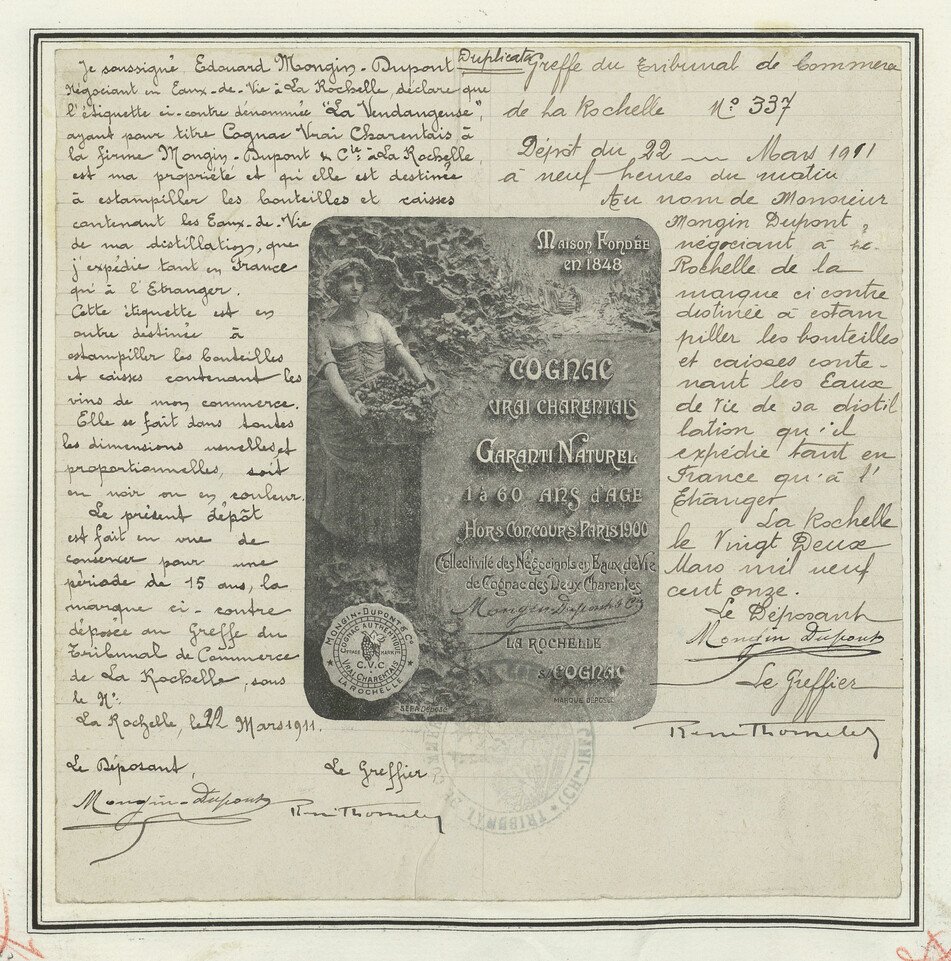 Je soussigné Edouard Mongin-Dupont
Négociant en Eaux-de-Vie à La Rochelle, déclare que
l'étiquette ci-contre dénommée "La Vendangeuse",
ayant pour titre Cognac Vrai Charentais à
la firme Mongin-Dupont & Cie à La Rochelle,
est ma propriété et qu'elle est destinée
à estampiller les bouteilles et caisses
contenant les Eaux-de-Vie
de ma distillation, que
j'expédie tant en France
qu'à l'Etranger.
Cette étiquette est en
outre destinée à
estampiller les bouteilles
et caisses contenant les
vins de mon commerce.
Elle se fait dans toutes
les dimensions usuelles et
proportionnelles, soit
en noir ou en couleur.
Le présent dépôt
est fait en vue de
conserver pour une
période de 15 ans, la
marque ci-contre
déposée au Greffe du
Tribunal de Commerce
de La Rochelle, sous
le No:
La Rochelle, le 22 Mars 1911.
Le Déposant,
Mongin-Dupont
Le Greffier
Duplicata
Greffe du Tribunal de Commerce
de La Rochelle No: 337
Dépôt du 22 Mars 1911
à neuf heures du matin
Au nom de Monsieur
Mongin Dupont
négociant à
Rochelle de la
marque ci contre
destinée à estam
piller les bouteilles
et caisses conte-
nant les Eaux
de Vie de sa distil
lation qu'il
expédie tant en
France qu'à l'
Etranger
La Rochelle
le Vingt Deux
Mars mil neuf
cent onze.
Le Déposant
Mongin Dupont
Le Greffier
Maison Fondée
en 1848
COGNAC
VRAI CHARENTAIS
GARANTI NATUREL
1 à 60 ANS d'AGE
HORS CONCOURS, PARIS 1900
Collectivité des Négociants en Eaux de Vie
de Cognac des Deux Charentes
Mongin-Dupont & Cie
LA ROCHELLE
s/COGNAC
MARQUE DEPOSÉE
MONGIN-DUPONT & Cº
COGNAC AUTHENTIQUE
C.V.C
VRAI CHARENTAIS
LA ROCHELLE
TRIBUNAL DE
(Chte-INFRE)